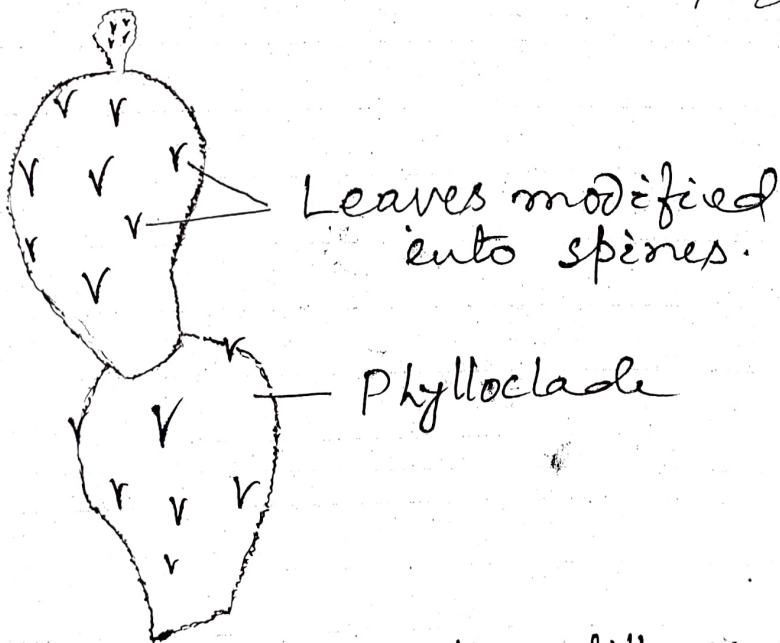 Leaves modified
into spines.
Phylloclade